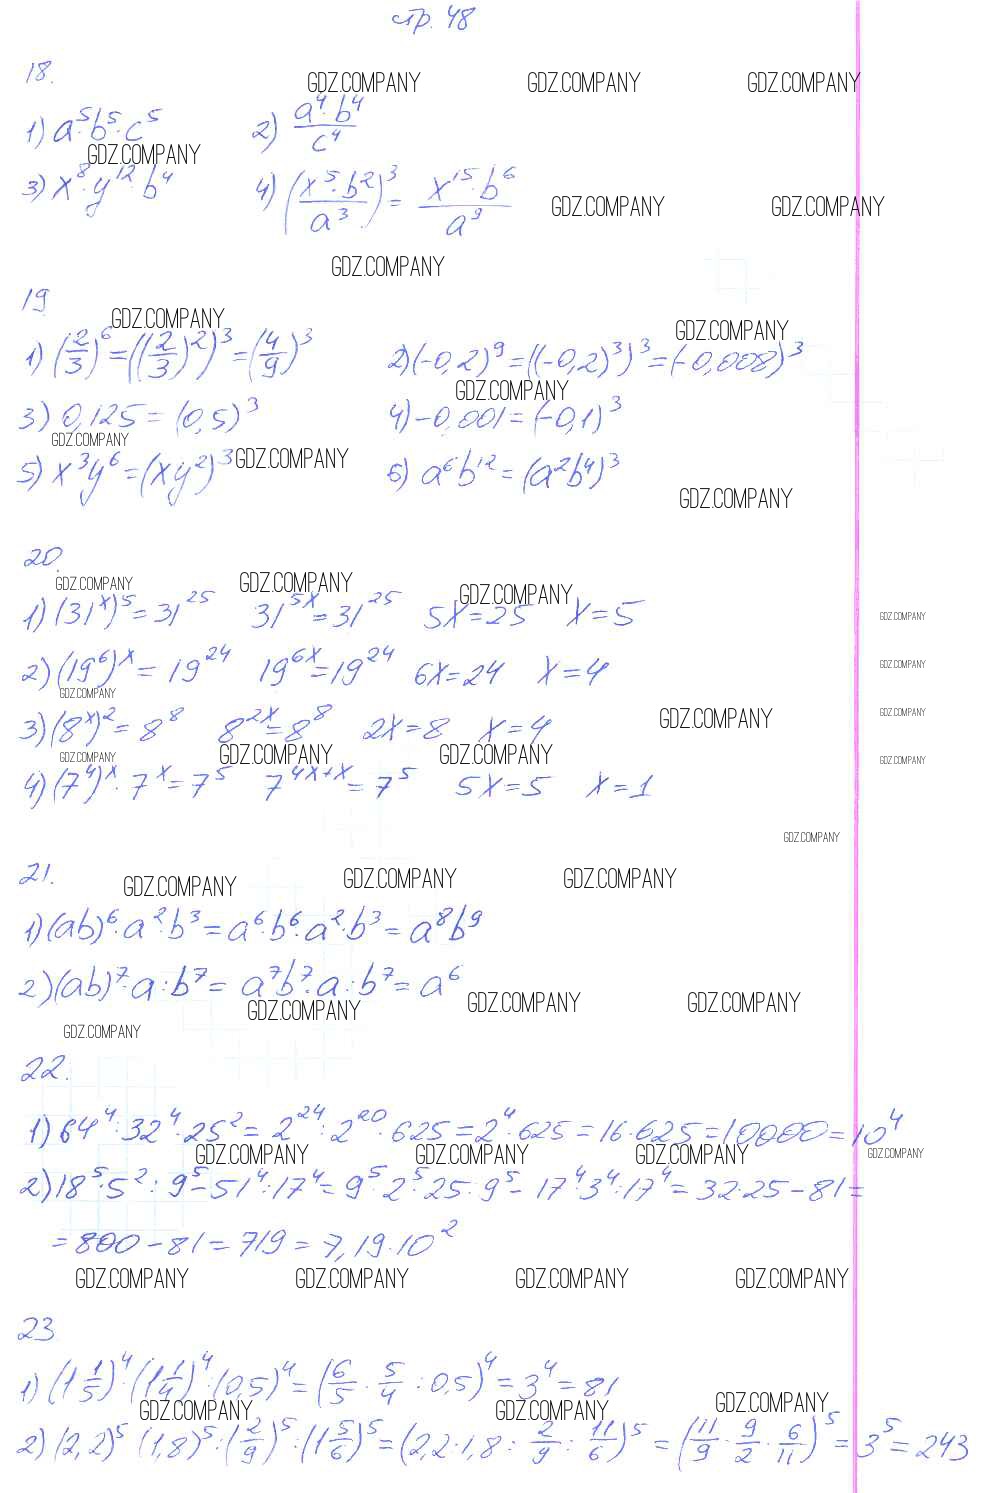 стр. 48
18.
GDZ.COMPANY GDZ.COMPANY GDZ.COMPANY
1) a⁵·b⁵·c⁵ 2) (a⁴·b⁴)/c⁴
GDZ.COMPANY
3) x⁸·y¹²·b⁴ 4) ((x⁵·b²)/a³)³ = (x¹⁵·b⁶)/a⁹
GDZ.COMPANY GDZ.COMPANY
GDZ.COMPANY
19
GDZ.COMPANY GDZ.COMPANY
1) (2/3)⁶ = ((2/3)²)³ = (4/9)³ 2) (-0,2)⁹ = ((-0,2)³)³ = (-0,008)³
GDZ.COMPANY
3) 0,125 = (0,5)³ 4) -0,001 = (-0,1)³
GDZ.COMPANY GDZ.COMPANY
5) x³y⁶ = (xy²)³ 6) a⁶b¹² = (a²b⁴)³
GDZ.COMPANY
20.
GDZ.COMPANY GDZ.COMPANY GDZ.COMPANY
1) (31ˣ)⁵ = 31²⁵ 31⁵ˣ = 31²⁵ 5x = 25 x = 5
GDZ.COMPANY
2) (19⁶)ˣ = 19²⁴ 19⁶ˣ = 19²⁴ 6x = 24 x = 4
GDZ.COMPANY
GDZ.COMPANY
3) (8ˣ)² = 8⁸ 8²ˣ = 8⁸ 2x = 8 x = 4
GDZ.COMPANY GDZ.COMPANY
GDZ.COMPANY GDZ.COMPANY GDZ.COMPANY GDZ.COMPANY
4) (7⁴)ˣ · 7ˣ = 7⁵ 7⁴ˣ⁺ˣ = 7⁵ 5x = 5 x = 1
GDZ.COMPANY
21.
GDZ.COMPANY GDZ.COMPANY GDZ.COMPANY
1) (ab)⁶·a²·b³ = a⁶·b⁶·a²·b³ = a⁸b⁹
2) (ab)⁷:a:b⁷ = a⁷b⁷:a:b⁷ = a⁶
GDZ.COMPANY GDZ.COMPANY GDZ.COMPANY
GDZ.COMPANY
22.
1) 64⁴:32⁴·25² = 2²⁴:2²⁰·625 = 2⁴·625 = 16·625 = 10000 = 10⁴
GDZ.COMPANY GDZ.COMPANY GDZ.COMPANY GDZ.COMPANY
2) 18⁵·5²:9⁵-51⁴:17⁴ = 9⁵·2⁵·25:9⁵-17⁴·3⁴:17⁴ = 32·25-81 =
= 800-81 = 719 = 7,19·10²
GDZ.COMPANY GDZ.COMPANY GDZ.COMPANY GDZ.COMPANY
23
1) (1 1/5)⁴·(1 1/4)⁴:(0,5)⁴ = (6/5 · 5/4 : 0,5)⁴ = 3⁴ = 81
GDZ.COMPANY GDZ.COMPANY GDZ.COMPANY
2) (2,2)⁵ (1,8)⁵:(2/9)⁵:(1 5/6)⁵ = (2,2·1,8 : 2/9 : 11/6)⁵ = (11/9 · 9/2 · 6/11)⁵ = 3⁵ = 243